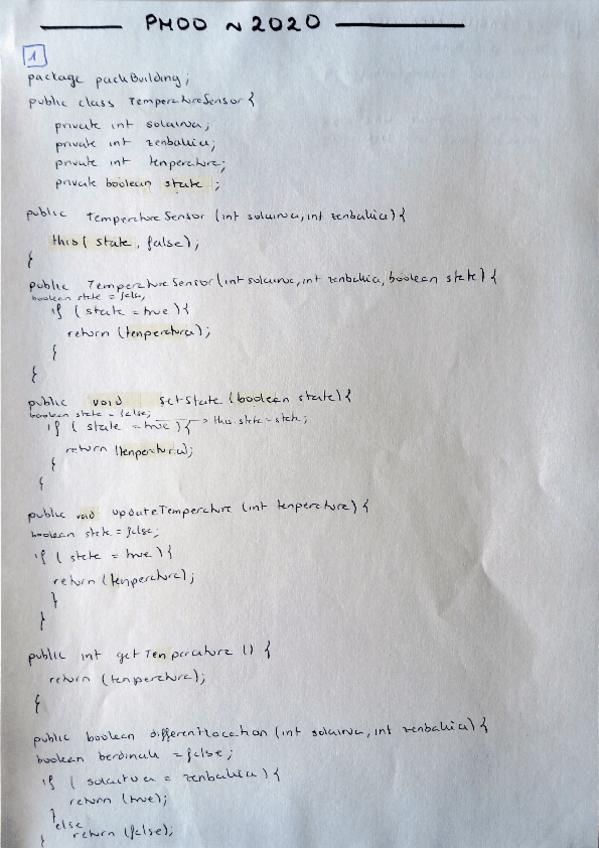 PMOO ~ 2020
1
package packBuilding;
public class TemperatureSensor {
private int solairua;
private int zenbakia;
private int tenperature;
private boolean state ;
public TemperatureSensor (int solairua, int zenbakia) {
this( state, false);
}
public TemperatureSensor (int solairua, int zenbakia, boolean state) {
boolean state = false;
if ( state = true ) {
return (tenperatura);
}
}
public void setState (boolean state) {
boolean state = false;
if ( state = true ) { this.state = state;
return (tenperatura);
}
{
public void updateTemperature (int tenperature) {
boolean state = false;
if ( state = true ) {
return (tenperature);
}
}
public int getTenperature () {
return (tenperature);
{
public boolean differentLocation (int solairua, int zenbakia) {
boolean berdinak = false;
if ( solairua = zenbakia ) {
return (true);
} else
return (false);
}